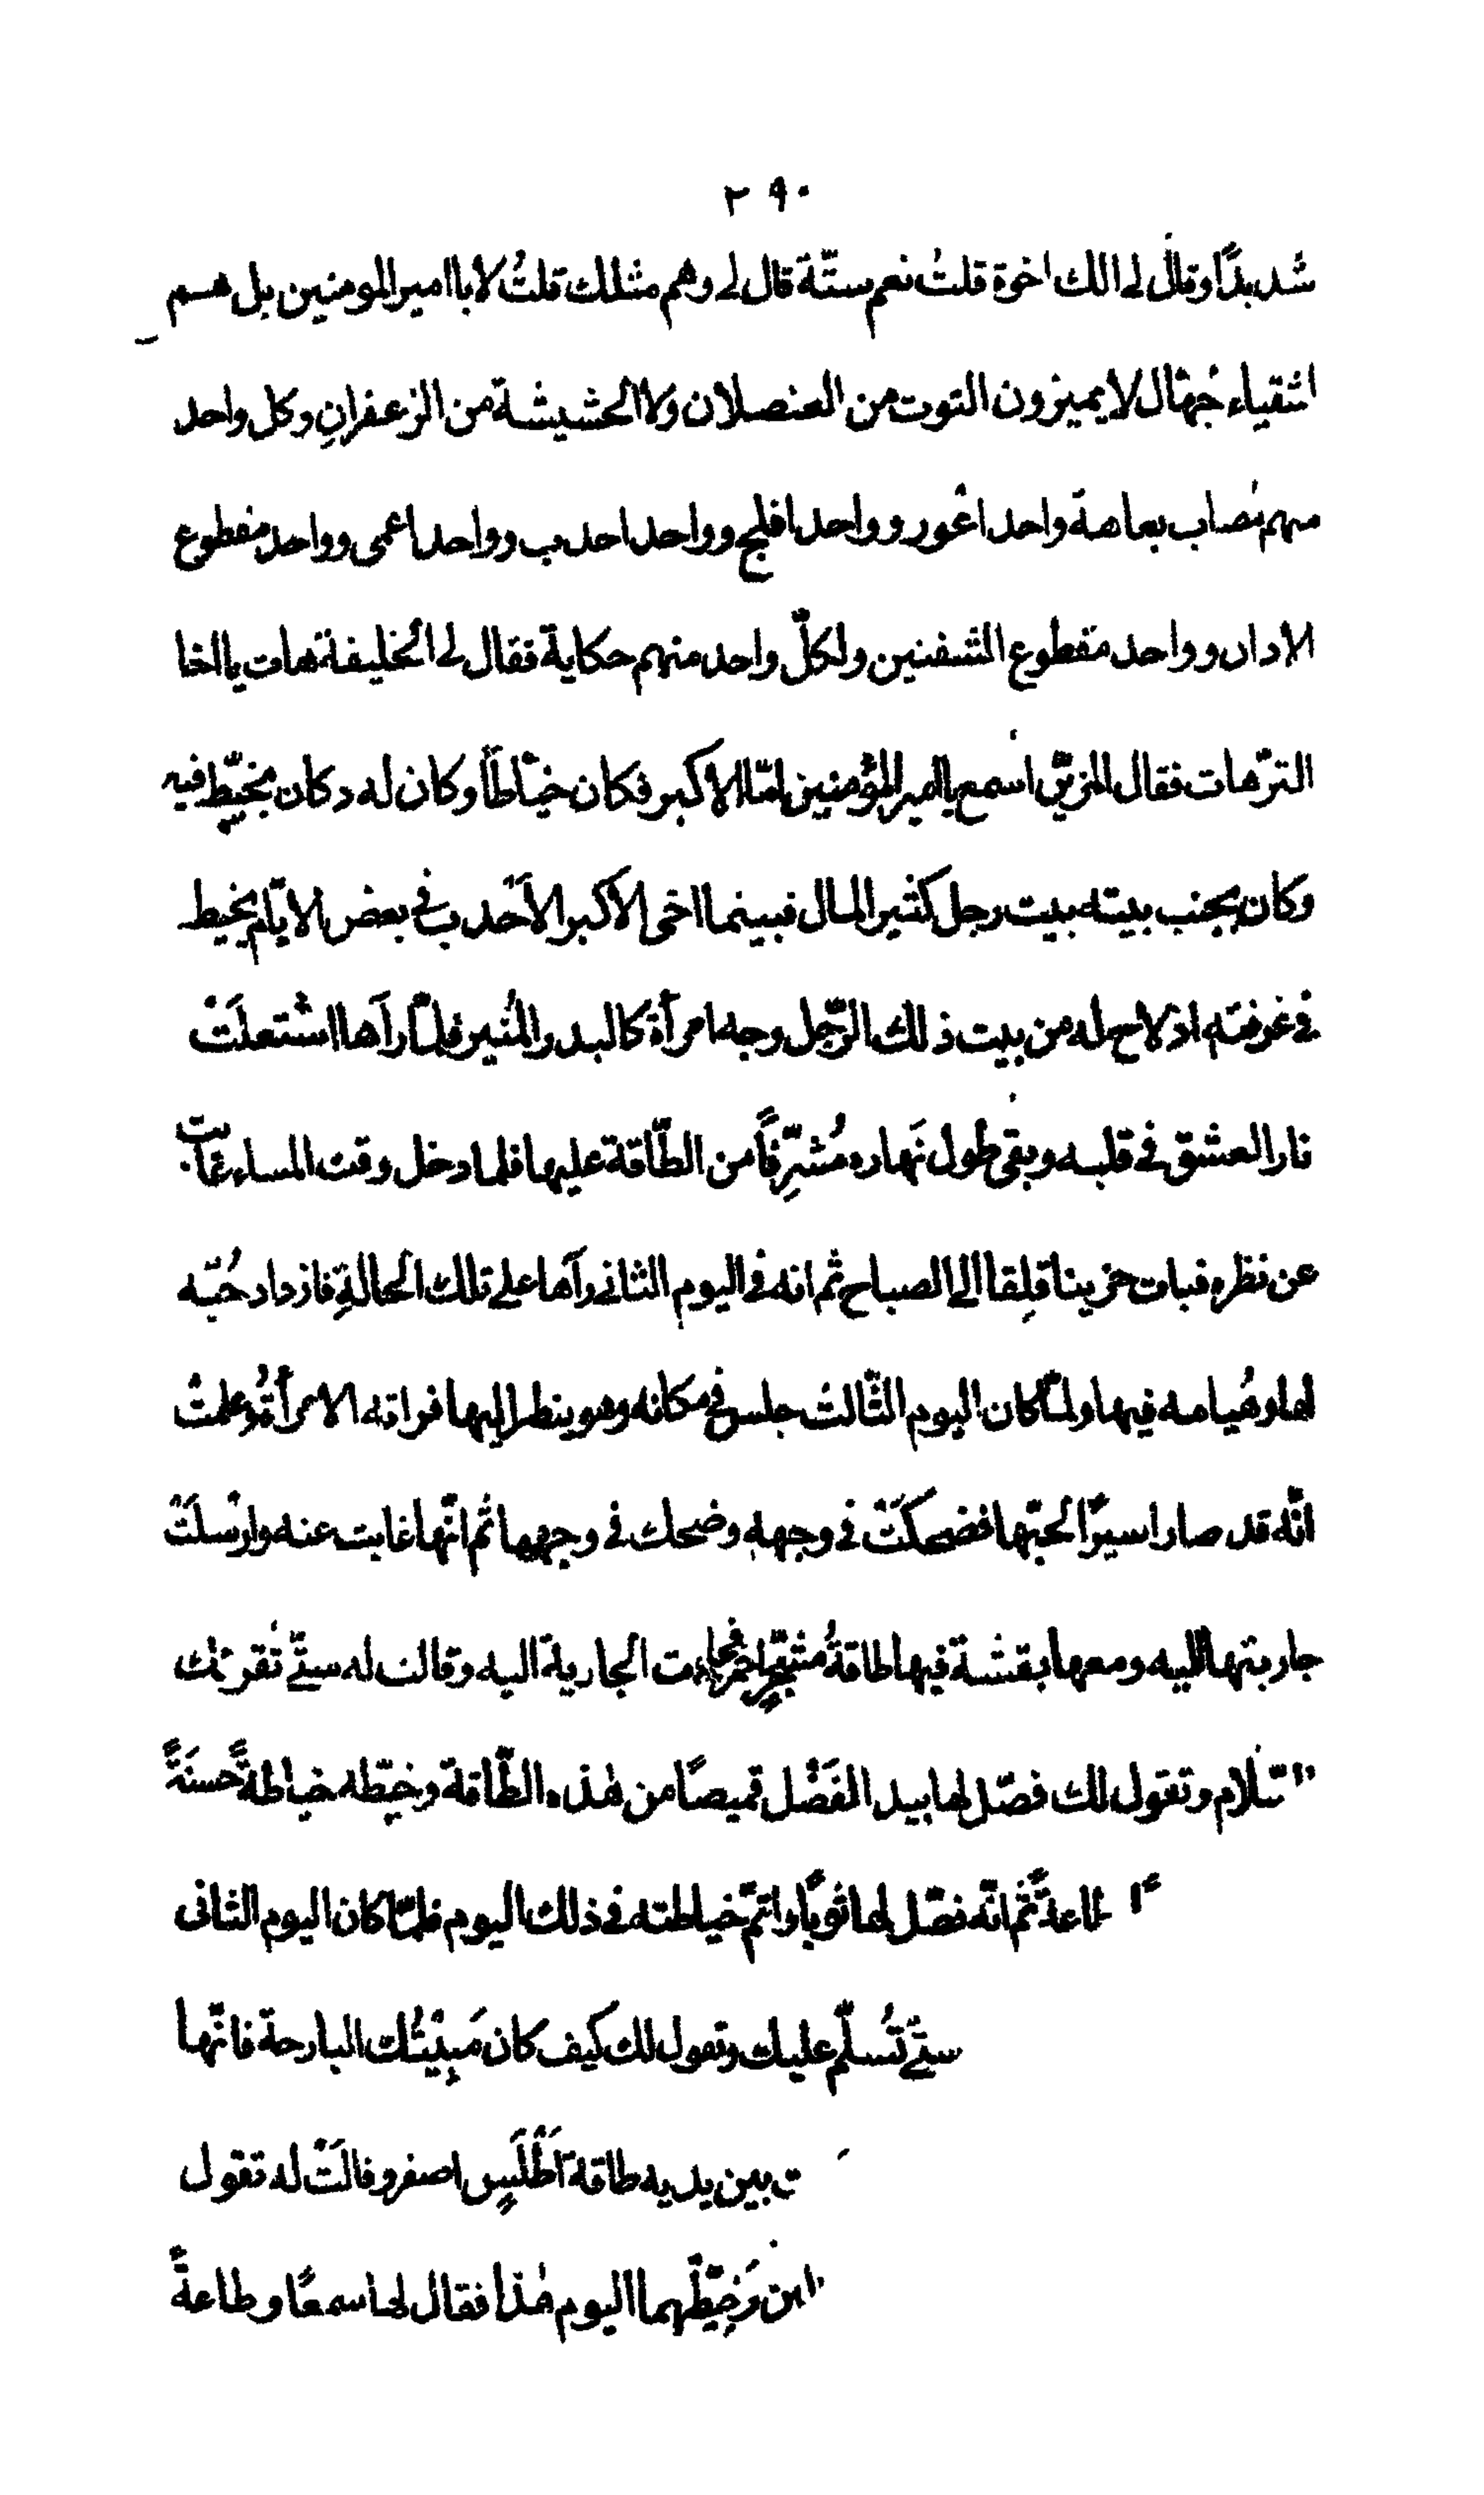 ٢٩٠
شديدًا وقال لى الك اخوة قلتُ نعم ستّة قال لى وهم مثلك قلتُ لا يا امير المومنين بل هم
اشقياء جُهّال لا يميزون التوت من العنصلان ولا الحشيشة من الزعفران وكل واحد
منهم مُصاب بعاهة واحد اعور وواحد افلج وواحد احدب وواحد اعمى وواحد مقطوع
الاذان وواحد مقطوع الشفتين ولكلّ واحد منهم حكاية فقال لى الخليفة هات يا
الترّهات فقال المزيّن اسمع يا امير المؤمنين امّا الاكبر فكان خيّاطًا وكان له دكان يخيّط فيه
وكان بجنب بيته بيت رجل كثير المال فبينما اخى الاكبر الاَحدب فى بعض الايّام يخيط
فى غرفته اذ لاح له من بيت ذلك الرّجل وجه امرأة كالبدر المُنير فلمّا رآها اشتعلَتْ
نار العشق فى قلبه وبقى طول نَهاره مُشترِفًا من الطّاقة عليها فلما دخل وقت المساء غابَتْ
عن نظره فبات حزينا قلِقا الى الصباح ثم انه فى اليوم الثانى رآها على تلك الحالةِ فازداد حُبّه
لها وهُيامه فيها ولمّا كان اليوم الثّالث جلس فى مكانه وهو ينظر اليها فراته الامرأةُ وعلمتْ
انّه قد صار اسيرًا لحبّها فضحكَتْ فى وجهه وضحك فى وجهها ثم انّها غابت عنه وارسلَتْ
جاريتها اليه ومعها بقشة فيها طاقةُ مشجّر فجاءت الجارية اليه وقالت له ستّى تُقرئك
السّلام وتقول لك فصّل لها بيد الفَضْل قميصًا من هٰذه الطّاقة وخيّطه خياطةً حسنَةً
طاعةً ثُمّ انّه فصّل لها ثوبًا واتمّ خياطته فى ذلك اليوم فلمّا كان اليوم الثانى
ستّى تُسلّم عليك وتقول لك كيف كان مَبِيتُك البارحة فانّها
ت بين يديه طاقة اَطْلَسٍ اصفر وقالَتْ له تقول
وخَيِّطْهما اليوم هٰذا فقال لها سمعًا وطاعةً